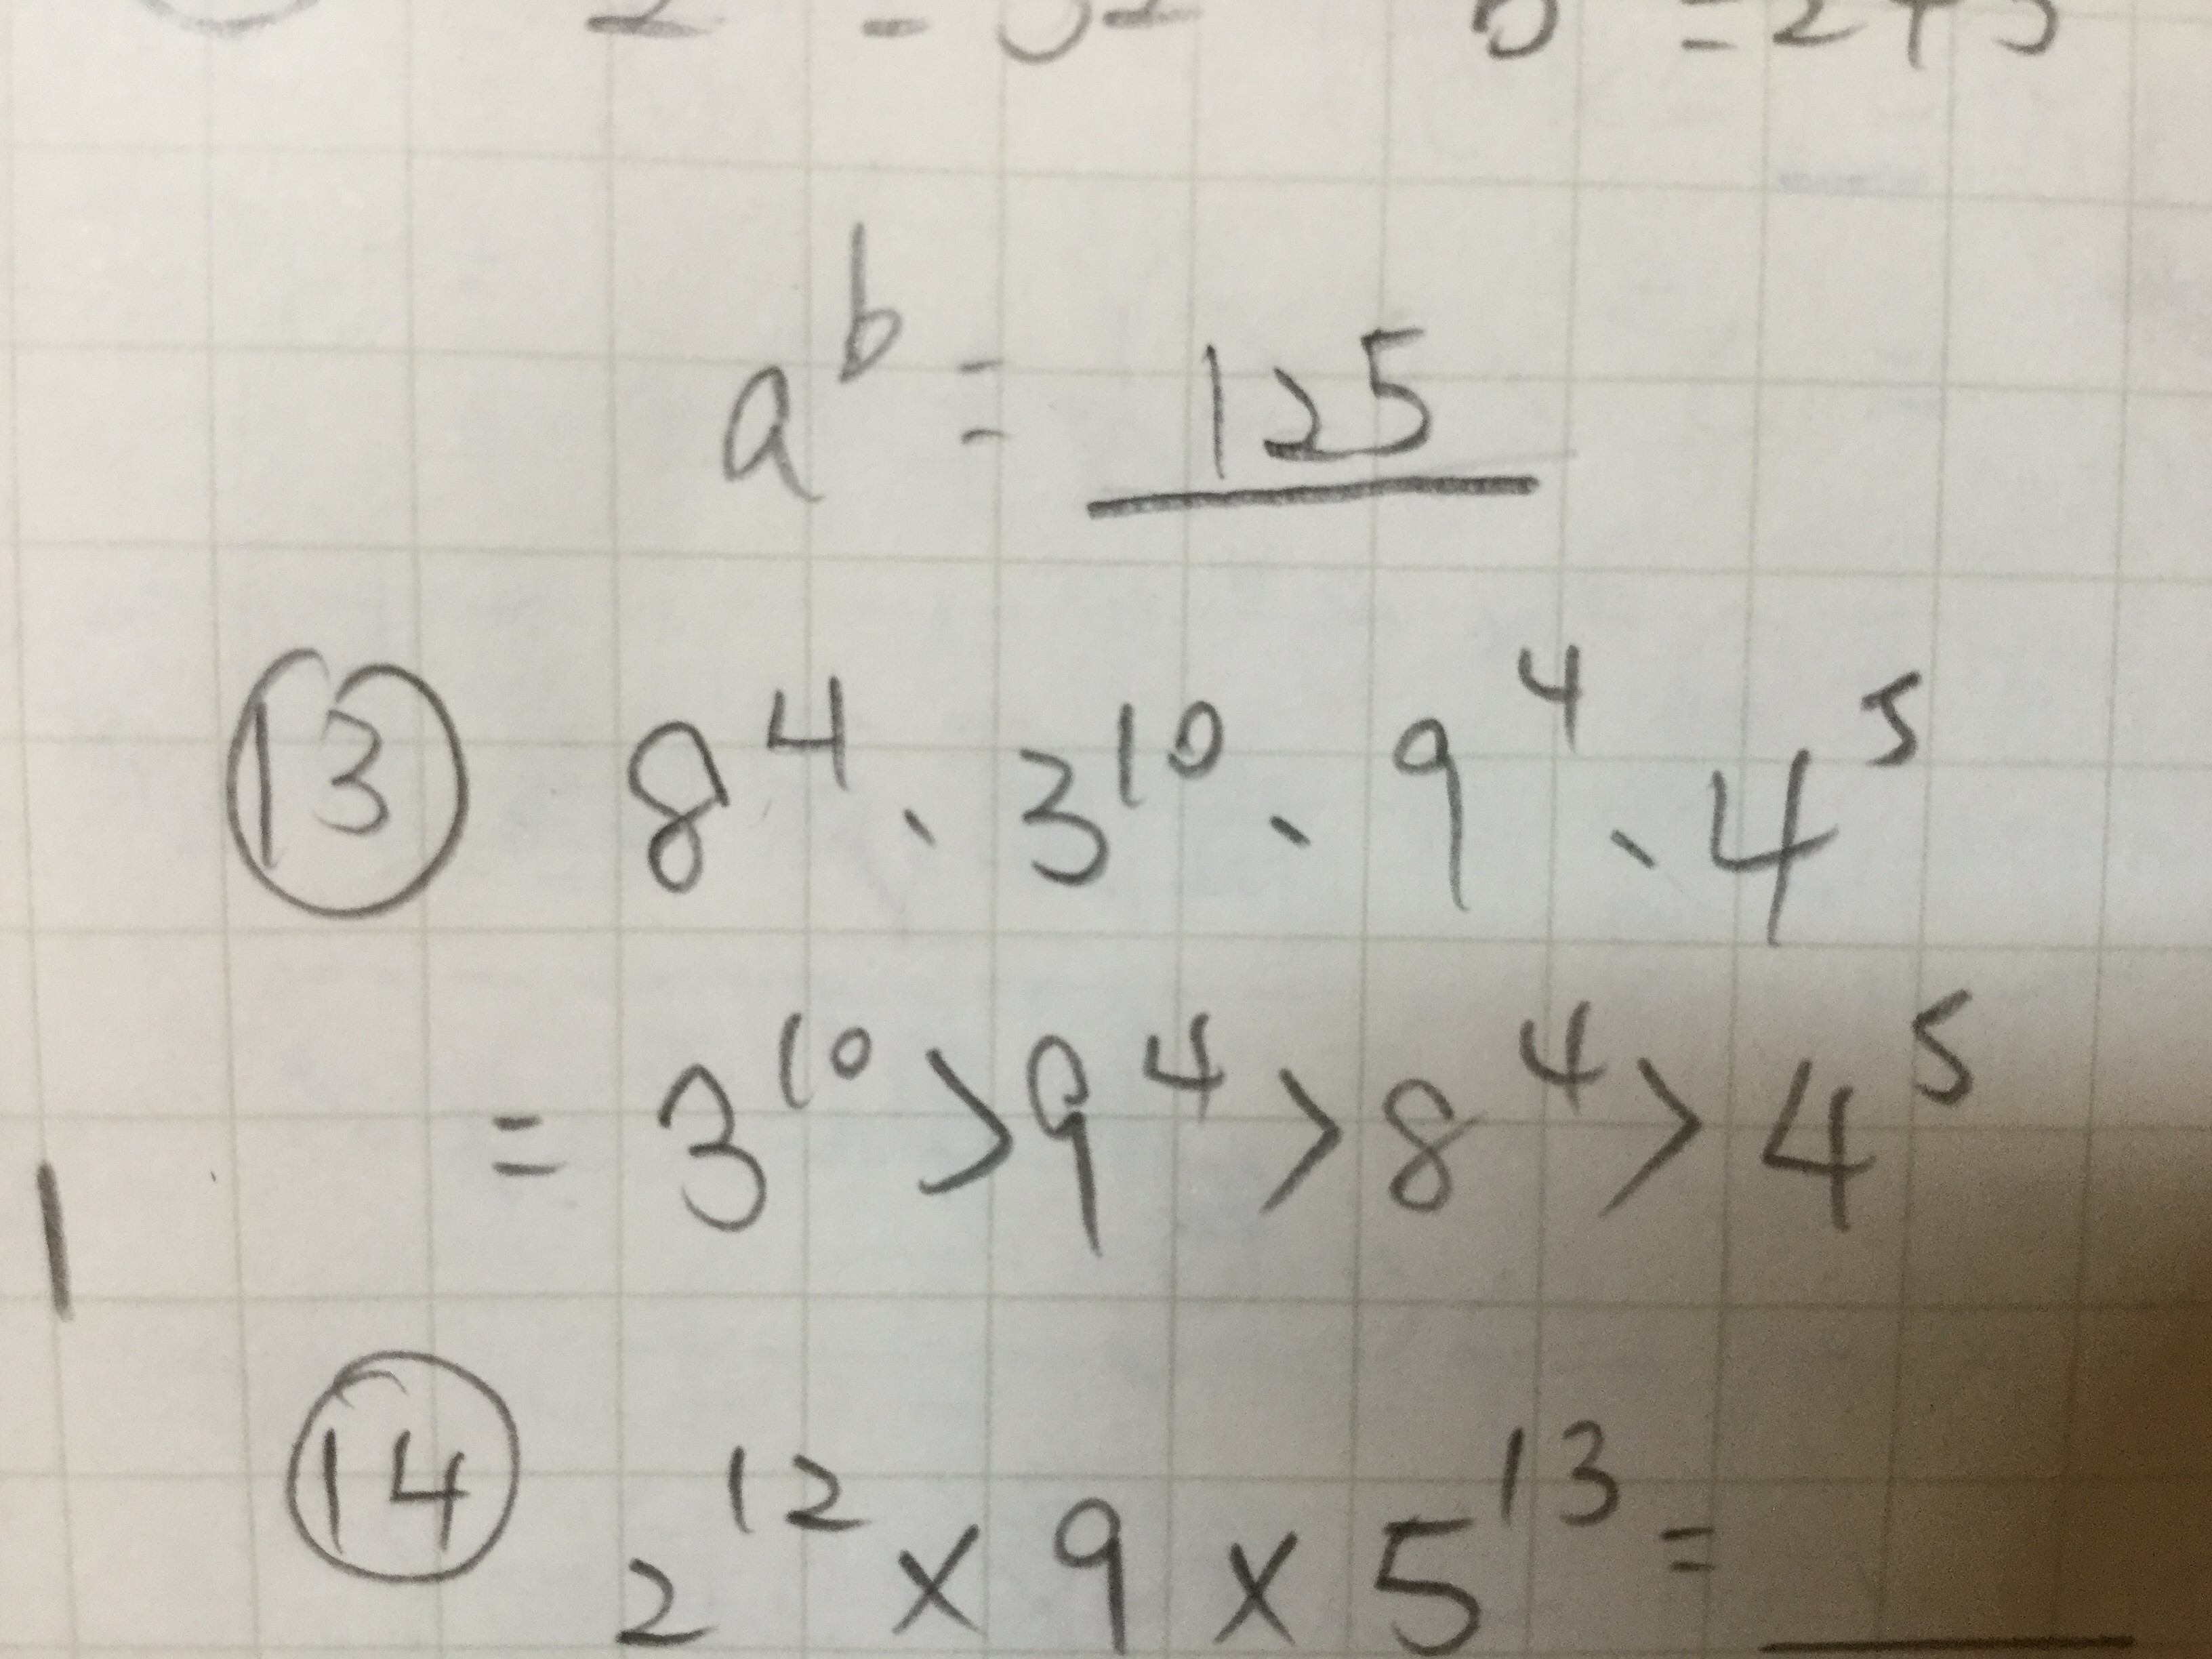 a^b = 125
⑬ 8^4、3^10、9^4、4^5
= 3^10 > 9^4 > 8^4 > 4^5
⑭ 2^12 × 9 × 5^13 = ____